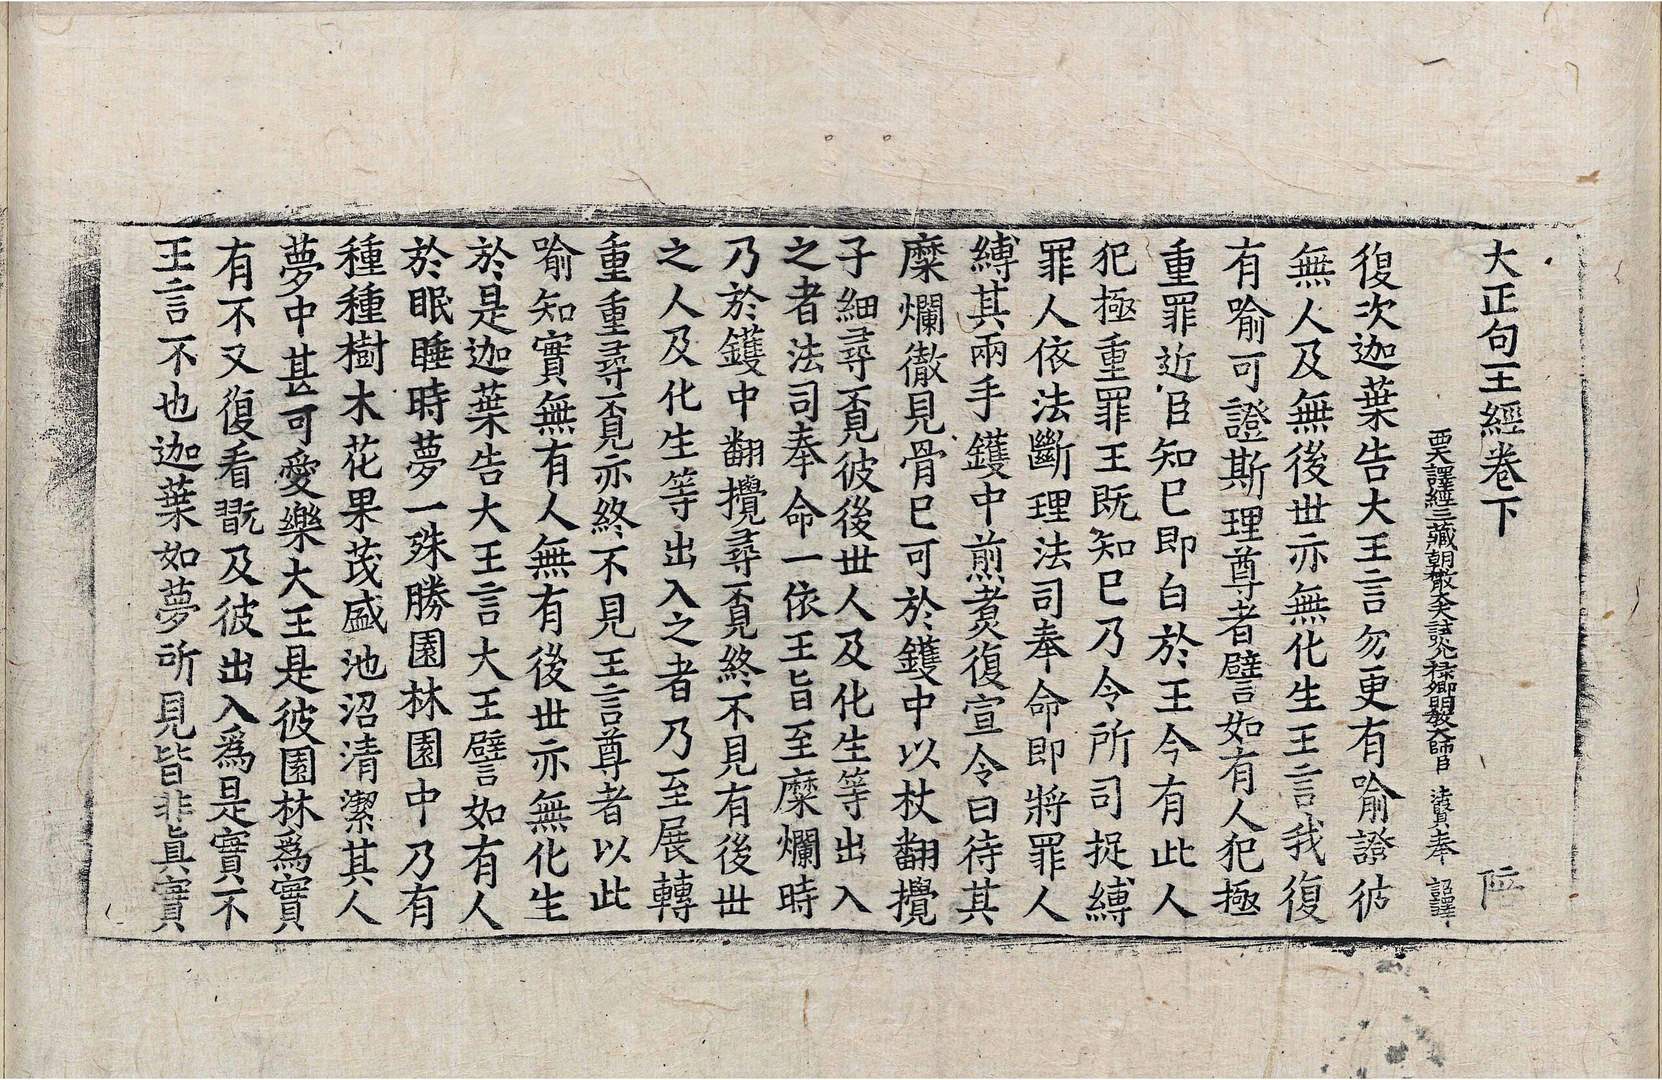 大正句王經卷下
西天譯經三藏朝散大夫試光祿卿明教大師臣 法賢奉 詔譯
復次迦葉告大王言勿更有喻證彼
無人及無後世亦無化生王言我復
有喻可證斯理尊者譬如有人犯極
重罪近臣知已即白於王今有此人
犯極重罪王旣知已乃令所司捉縛
罪人依法斷理法司奉命即將罪人
縛其兩手鑊中煎煮復宣令曰待其
糜爛徹見骨已可於鑊中以杖翻攪
子細尋覓彼後世人及化生等出入
之者法司奉命一依王旨至糜爛時
乃於鑊中翻攪尋覓終不見有後世
之人及化生等出入之者乃至展轉
重重尋覓亦終不見王言尊者以此
喻知實無有人無有後世亦無化生
於是迦葉告大王言大王譬如有人
於眠睡時夢一殊勝園林園中乃有
種種樹木花果茂盛池沼清潔其人
夢中甚可愛樂大王是彼園林爲實
有不又復看翫及彼出入爲是實不
王言不也迦葉如夢所見皆非真實